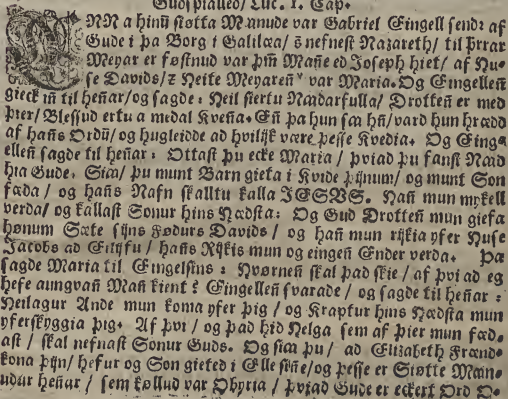 Gudspialled/ Luc. 1. Cap.
NN a hinū siøtta Mꜳnude var Gabriel Eingell sendꝛ af
Gude i þa Borg i Galilæa/ ſ nefnest Nazareth/ til þrrar
Meyar er føstnud var þm̄ Mañe ed Joseph hiet/ af Hu-
se Davids/ ⁊ Heite Meyareñˢ var Maria. Og Eingelleñ
gieck iñ til heñar/ og sagde: Heil siertu Nꜳdarfulla/ Drotteñ er med
þier/ Blessud ertu a medal Kveña. Eñ þa hun sꜳ hñ/ vard hun hrædd
af hañs Ordū/ og hugleidde ad hvilijk være þesse Kvedia. Og Eing-
elleñ sagde til heñar: Ottast þu ecke Maria/ þviad þu fanst Nꜳd
hia Gude. Siꜳ/ þu munt Barn gieta i Kvide þijnum/ og munt Son
fæda/ og hañs Nafn skalltu kalla JESVS. Hañ mun mykell
verda/ og kallast Sonur hins Hædsta: Og Gud Drotteñ mun giefa
hønum Sæte sijns Fødurs Davids/ og hañ mun rijkia yfer Huse
Jacobs ad Eilijfu/ hañs Rijkis mun og eingeñ Ender verda. Þa
sagde Maria til Eingelsins: Hvørneñ skal þad skie/ af þvi ad eg
hefe aungvañ Mañ kient ⁝ Eingelleñ svarade/ og sagde til heñar:
Heilagur Ande mun koma yfer þig/ og Kraptur hins Hædsta mun
yferskyggia þig. Af þvi/ og þad hid Helga sem af þier mun fæd-
ast/ skal nefnast Sonur Guds. Og siꜳ þu/ ad Elizabeth Frænd-
kona þijn/ hefur og Son gieted i Elle siñe/ og þesse er Siøtte Mꜳn-
udur heñar/ sem køllud var Obyria/ þviad Gude er eckert Ord O-